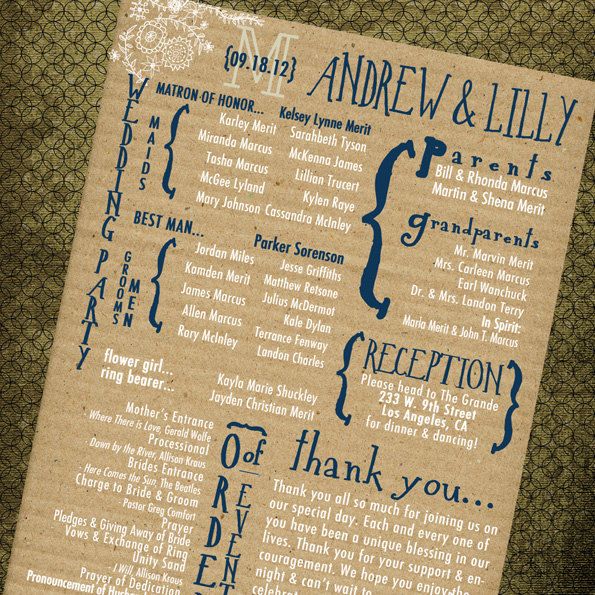 {09.18.12}
M
ANDREW & LILLY
WEDDING PARTY
MATRON OF HONOR... Kelsey Lynne Merit
MAIDS
Karley Merit
Miranda Marcus
Tasha Marcus
McGee Lyland
Mary Johnson
Sarahbeth Tyson
McKenna James
Lillian Trucert
Kylen Raye
Cassandra McInley
BEST MAN... Parker Sorenson
GROOMS MEN
Jordan Miles
Kamden Merit
James Marcus
Allen Marcus
Rory McInley
Jesse Griffiths
Matthew Retsone
Julius McDermot
Kale Dylan
Terrance Fenway
Landon Charles
flower girl... Kayla Marie Shuckley
ring bearer... Jayden Christian Merit
Parents
Bill & Rhonda Marcus
Martin & Shena Merit
grandparents
Mr. Marvin Merit
Mrs. Carleen Marcus
Earl Wanchuck
Dr. & Mrs. Landon Terry
In Spirit:
Maria Merit & John T. Marcus
RECEPTION
Please head to The Grande
233 W. 9th Street
Los Angeles, CA
for dinner & dancing!
Of
ORDE
EVENT
Mother's Entrance
Where There is Love, Gerald Wolfe
Processional
Down by the River, Allison Kraus
Brides Entrance
Here Comes the Sun, The Beatles
Charge to Bride & Groom
Pastor Greg Comfort
Prayer
Pledges & Giving Away of Bride
Vows & Exchange of Ring
Unity Sand
I Will, Allison Kraus
Prayer of Dedication
Pronouncement of
thank you...
Thank you all so much for joining us on
our special day. Each and every one of
you have been a unique blessing in our
lives. Thank you for your support & en-
couragement. We hope you enjoy the
night & can't wait to